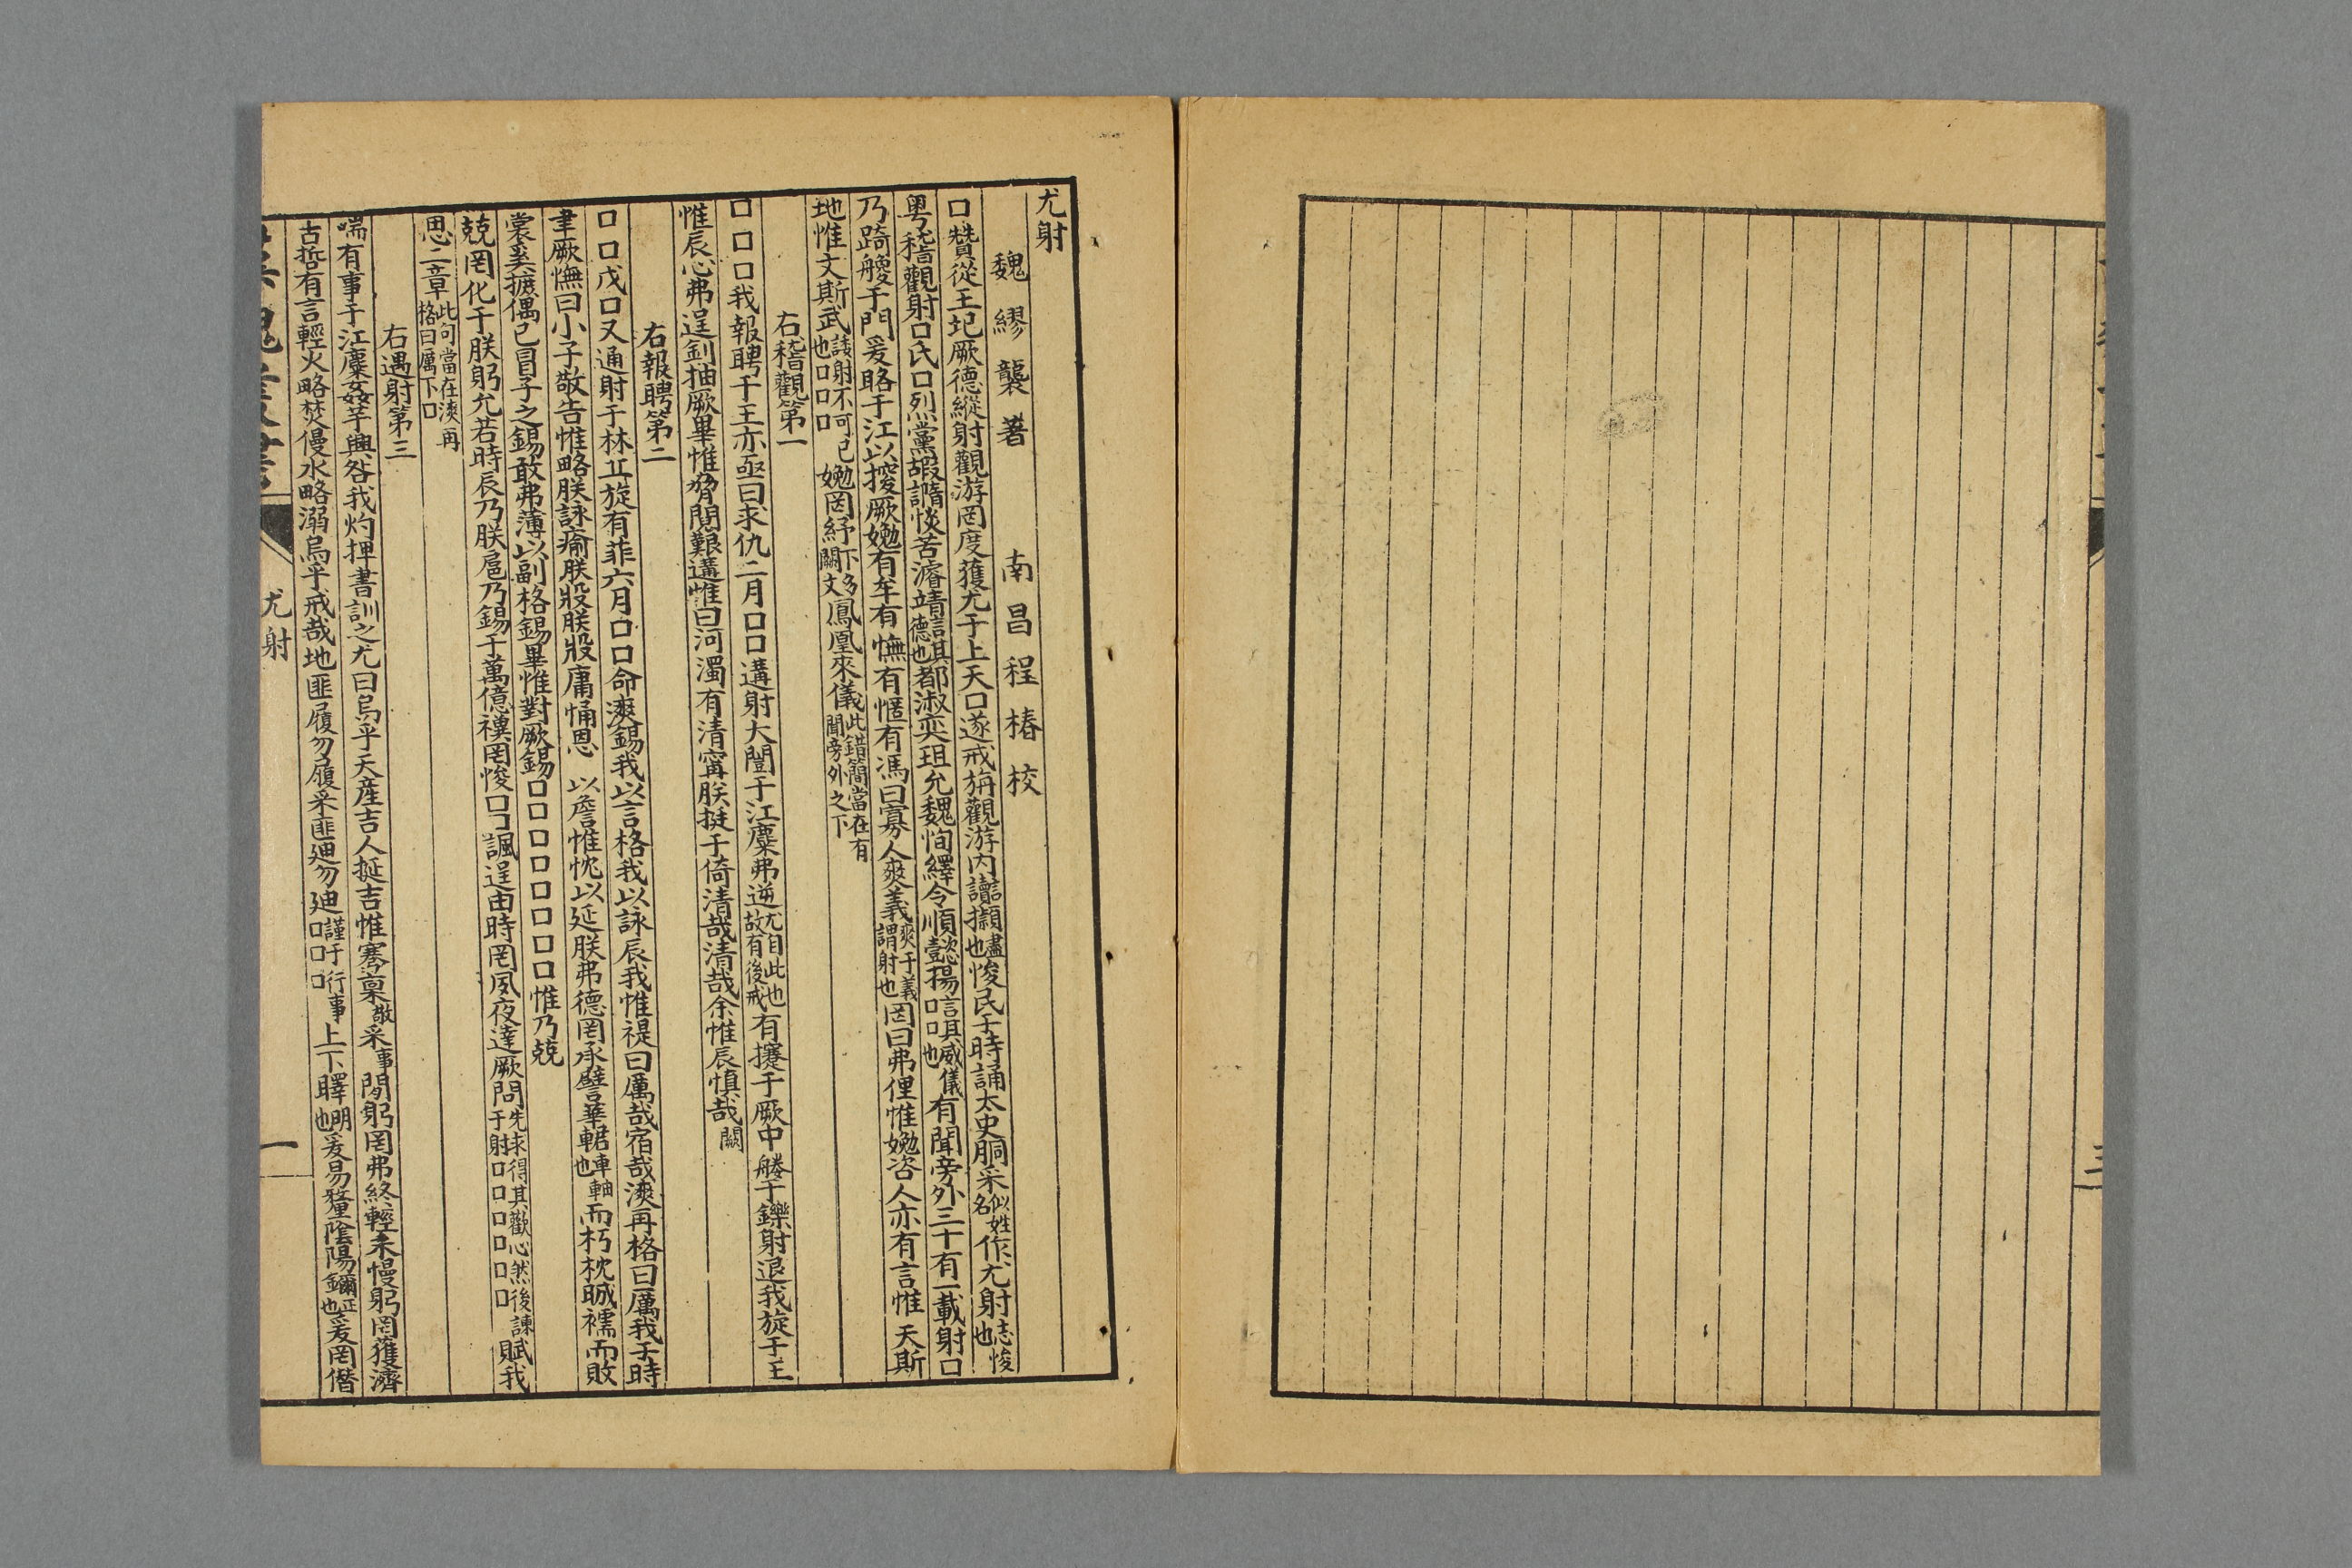 尤射
魏 繆襲 著 南昌 程椿 校
口贊從王圮厥德縱射觀游罔度獲尤于上天口遂戒旃觀游內讟擷盡也悛民于時誦太史胴采似姓名作尤射志悛也
粤稽觀射口氏口烈黨嘏謂惔苦濬靖言其德也都淑奕珇允魏恂繹令順懿揚言其威儀口口也有聞旁外三十有一載射口
乃踦艘于門爰賂于江以捘厥嬎有牟有憮有慝有馮曰寡人爽義爽于義謂射也罔曰弗俚惟嬎咨人亦有言惟天斯
地惟文斯武諉射不可已也口口口嬎罔紓下多闕文鳳凰來儀此錯簡當在有聞旁外之下
右稽觀第一
口口口我報聘于王亦亟曰求仇二月口口遘射大閱于江麋弗逆尤自此也故有後戒有攓于厥中艂于鑠射退我旋于王
惟辰心弗逞釗抽厥畢惟脅閒艱遘惟曰河濁有清甯朕挺于倚清哉清哉余惟辰慎哉闕
右報聘第二
口口戊口又通射于林丠旋有菲六月口口命漺錫我以言格我以詠辰我惟禔曰厲哉宿哉漺再格曰厲我于時
聿厥憮曰小子敬告惟略朕詠瘉朕殿朕殿庸恿思以詹惟忱以延朕弗德罔承譬華轄車軸也而朽枕晠襦而敗
裳奚擄偶已冒子之錫敢弗薄以副格錫畢惟對厥錫口口口口口口口口惟乃兢
兢罔化于朕躬允若時辰乃朕扈乃錫于萬億禩罔悛口口諷逞由時罔夙夜達厥問先求得其歡心然後諫于射口口口口口口賦我
思二章此句當在漺再格曰厲下口
右遇射第三
喘有事于江麋姦芋興咎我灼捭書訓之尤曰烏乎天產吉人挻吉惟騫稟敬采事閒躬罔弗終輕采慢躬罔獲濟
古哲有言輕火略焚慢水略溺烏乎戒哉地匪履勿履采匪迪勿迪謹于行事口口口上下睪明也爰易獞陰陽鑈正也爰罔僭
尤射
一
三